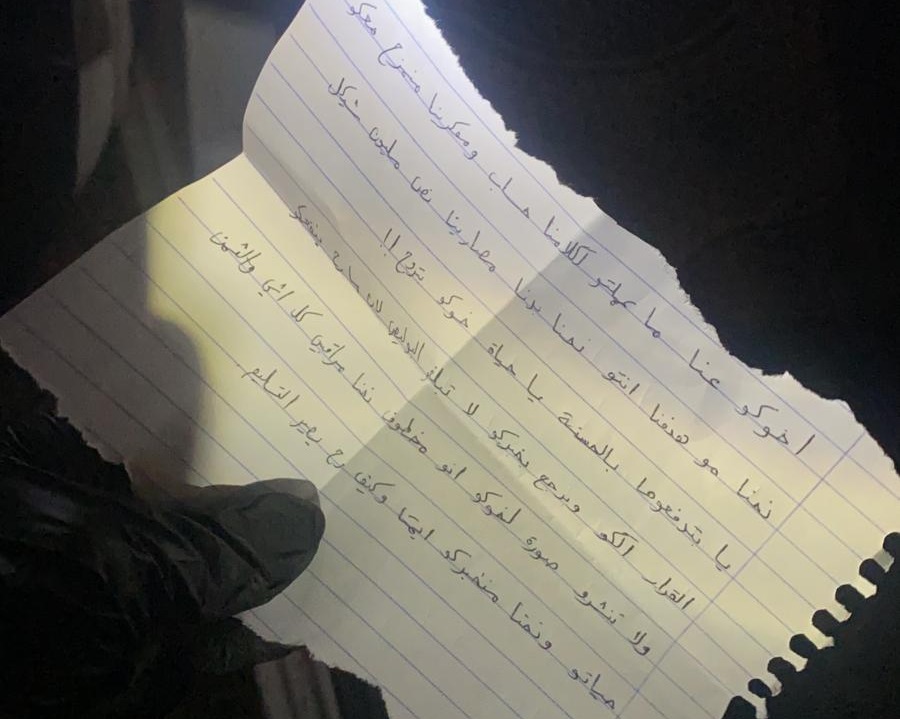 اخوكو عنا ما عملتو لكلامنا حساب ومفكرينا منمزح معكو
نحنا مو هدفنا انتو نحنا بدنا مصارينا نص مليون شيكل
يا بتدفعوها بالحسنة يا حياة خوكو بتروح !!
القرار الكو وبرجع بخبركو لا تبلغو البوليس لانه ما رح ينفعكو
ولا تنشرو صورة لخوكو انو مخطوف نحنا مراقبين كل اشي والثمن
حياتو ونحنا منخبركو ايمتا وكيف رح يصير التسليم